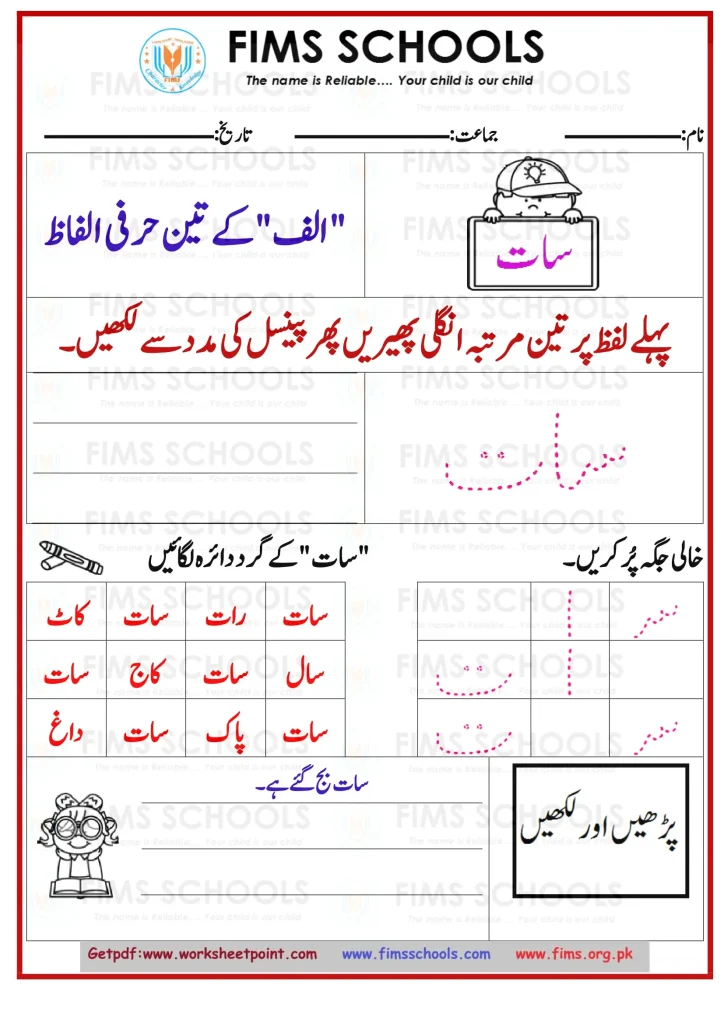 FIMS SCHOOLS
The name is Reliable.... Your child is our child
نام: جماعت: تاریخ:
سات
"الف" کے تین حرفی الفاظ
پہلے لفظ پر تین مرتبہ انگلی پھیریں پھر پینسل کی مدد سے لکھیں۔
سات
خالی جگہ پُر کریں۔
سـ ا
ا ت
سـ ت
"سات" کے گرد دائرہ لگائیں
سات رات سات کاٹ
سال سات کاج سات
سات پاک سات داغ
پڑھیں اور لکھیں
سات بج گئے ہے۔
Getpdf:www.worksheetpoint.com www.fimsschools.com www.fims.org.pk